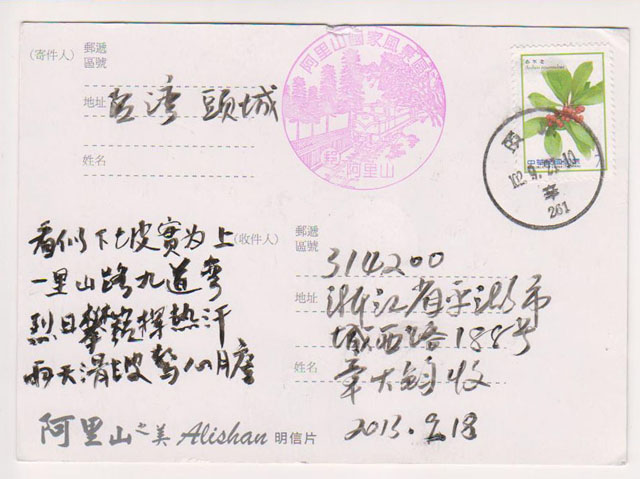 (寄件人)
郵遞
區號
地址
台湾 頭城
姓名
阿里山國家風景區
阿里山
102.9.21.10
261
看似下坡實为上
一里山路九道弯
烈日攀登挥热汗
雨天滑坡驚心膽
(收件人)
郵遞
區號
314200
地址
浙江省平湖市
城西路188号
姓名
章大鈞收
2013.9.18
阿里山之美 Alishan 明信片